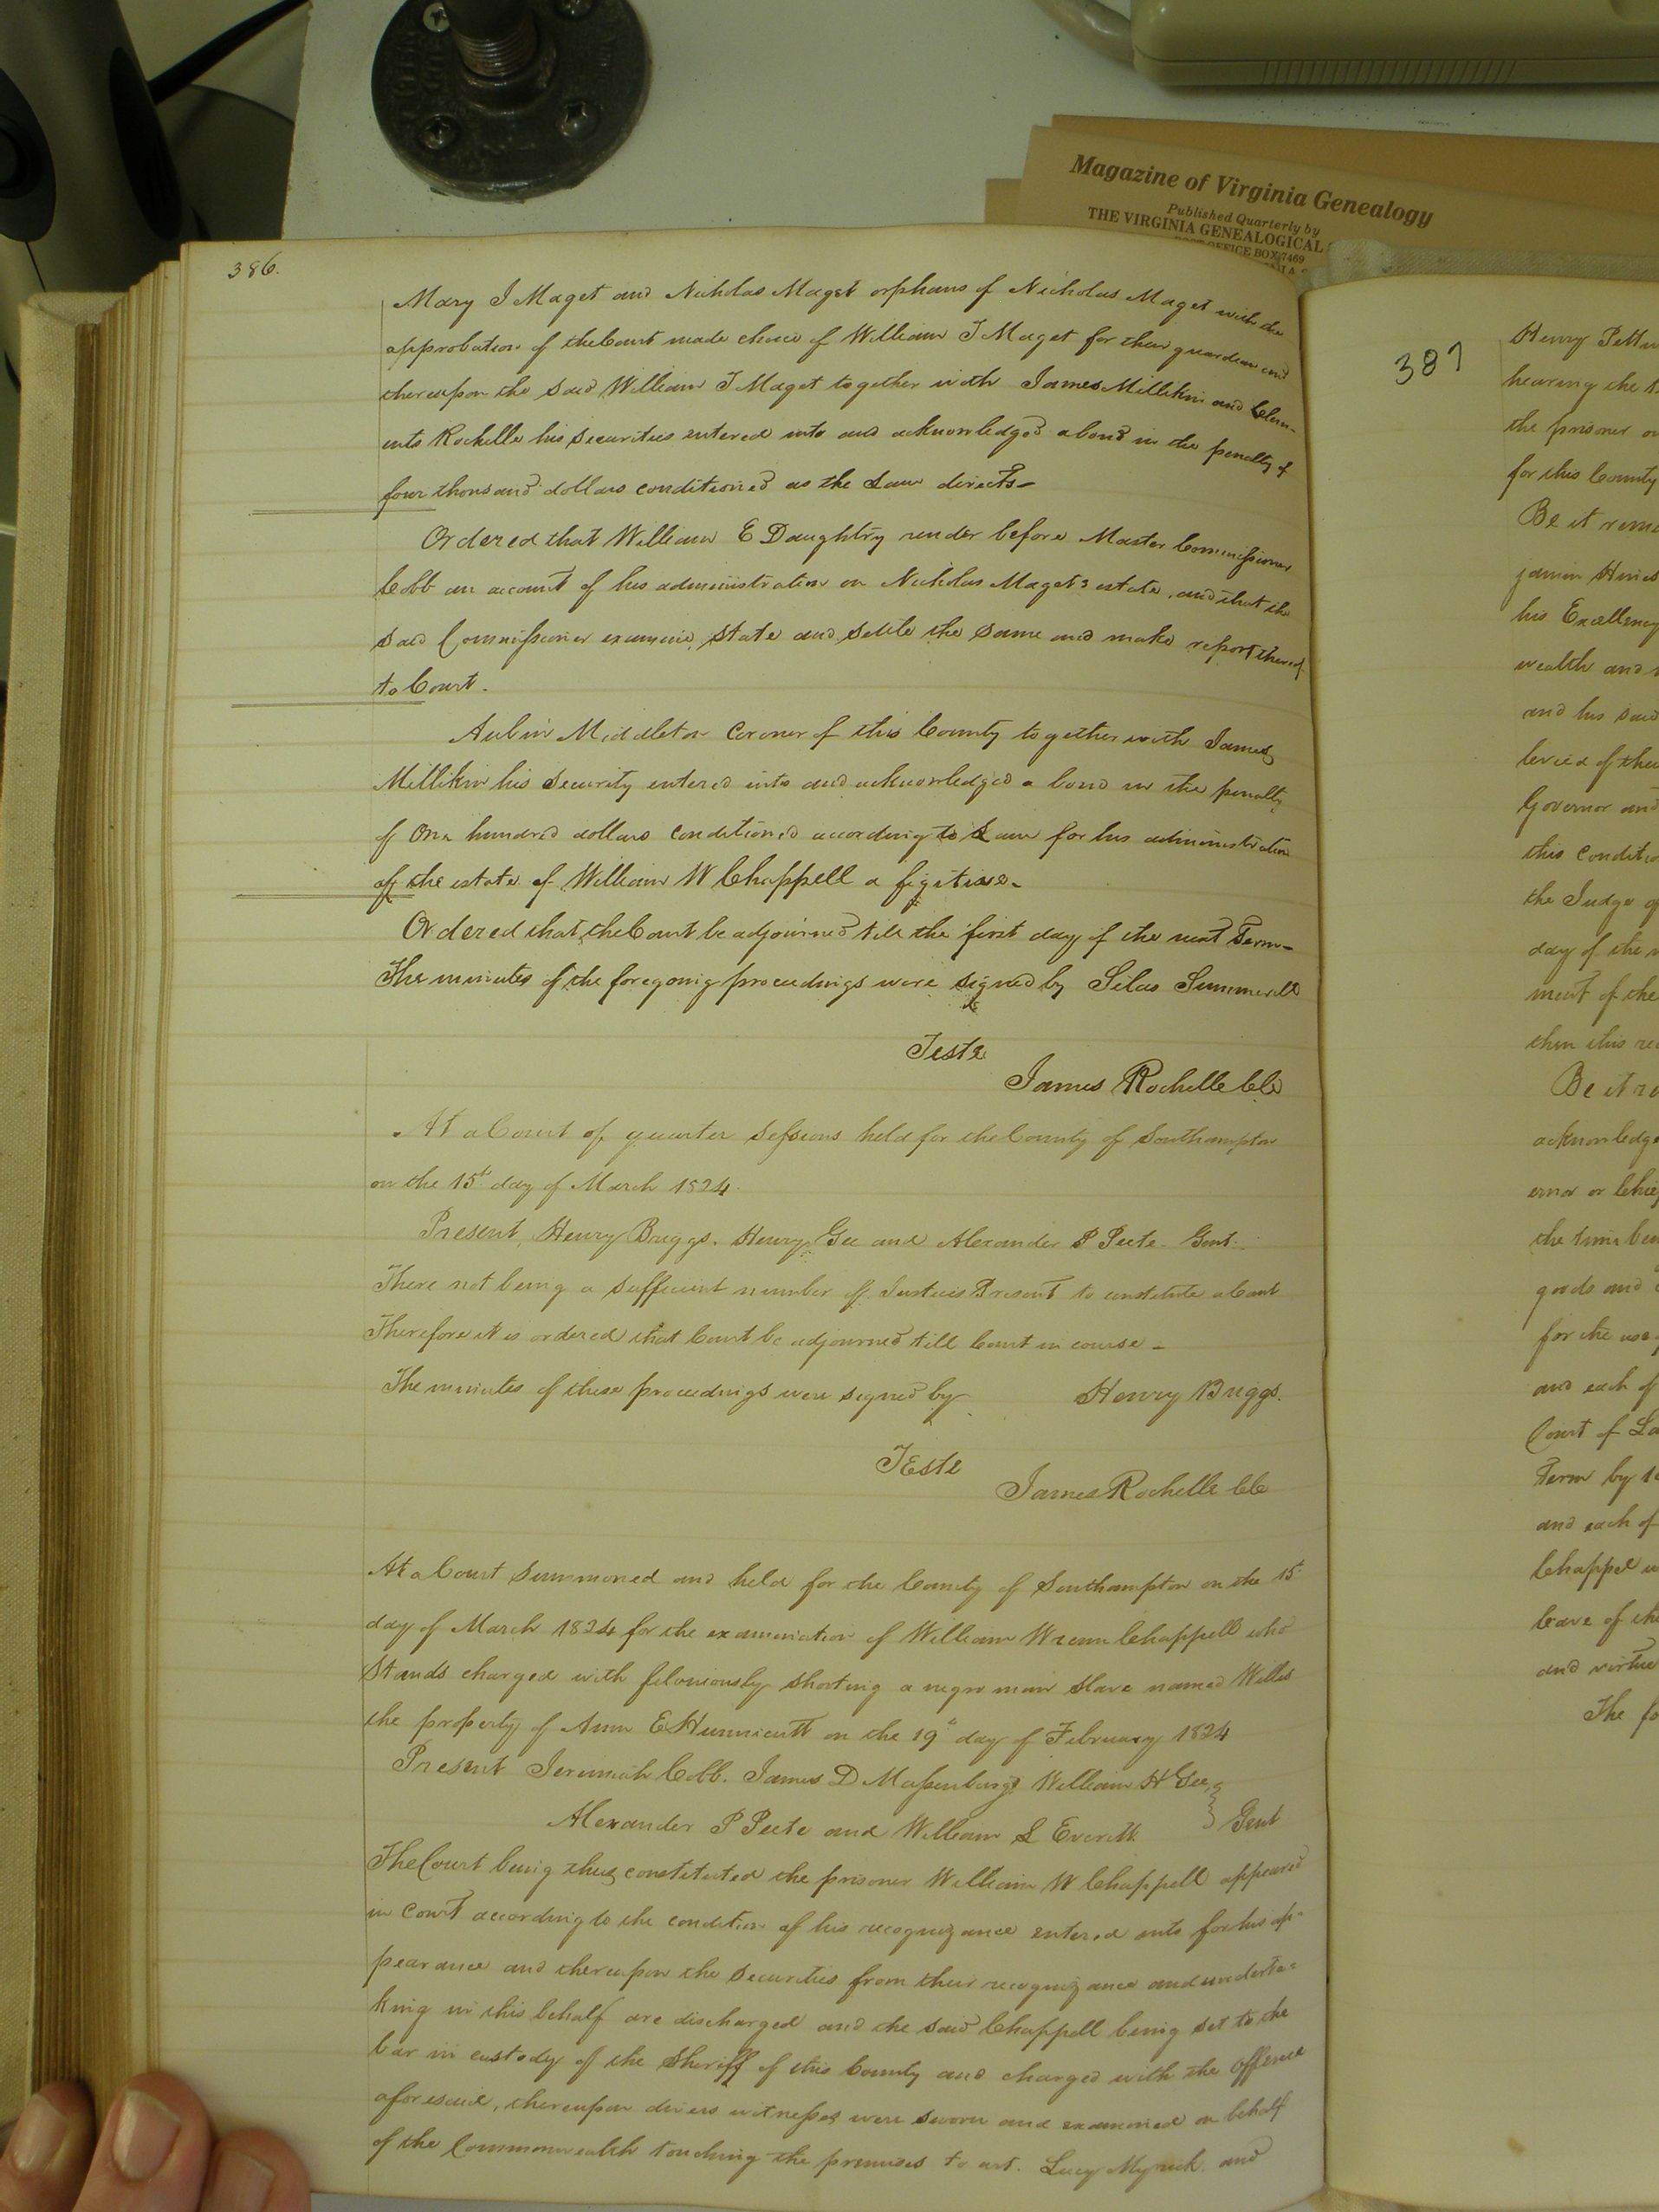 Magazine of Virginia Genealogy
Published Quarterly by
THE VIRGINIA GENEALOGICAL
OFFICE BOX 7469
386.
Mary J Maget and Nicholas Maget orphans of Nicholas Maget with the
approbation of the Court made choice of William J Maget for their guardian and
thereupon the said William J Maget together with James Millikin and Clem-
ents Rochelle his securities entered into and acknowledged a bond in the penalty of
four thousand dollars conditioned as the Law directs-
Ordered that William E Daughtry render before Master Commissioner
Cobb an account of his administration on Nicholas Maget's estate, and that the
said Commissioner examine, state and settle the same and make report thereof
to Court.
Aubin Middleton Coroner of this County together with James
Millikin his security entered into and acknowledged a bond in the penalty
of One hundred dollars conditioned according to Law for his administration
of the estate of William W Chappell a figitive.
Ordered that the Court be adjourned till the first day of the next Term-
The minutes of the foregoing proceedings were signed by Silas Summerell
Teste
James Rochelle Clc
At a Court of quarter Sessions held for the County of Southampton
on the 15th day of March 1824.
Present, Henry Briggs. Henry Gee and Alexander P Peete. Gent.
There not being a sufficient number of Justices Present to constitute a Court
Therefore it is ordered that Court be adjourned till Court in course -
The minutes of these proceedings were signed by Henry Briggs.
Teste
James Rochelle Clc
At a Court Summoned and held for the County of Southampton on the 15th
day of March 1824 for the examination of William Wrenn Chappell who
Stands charged with feloniously shooting a negro man slave named Willis
the property of Ann E Hunnicutt on the 19th day of February 1824
Present Jeremiah Cobb. James D Massenburg, William H Gee,
Alexander P Peete and William L Everitt } Gent
The Court being thus constituted the prisoner William W Chappell appeared
in Court according to the condition of his recognizance entered into for his ap-
pearance and thereupon the securities from their recognizance and underta-
king in this behalf are discharged and the said Chappell being set to the
bar in custody of the Sheriff of this County and charged with the offence
aforesaid, thereupon divers witnesses were sworn and examined on behalf
of the Commonwealth touching the premises to wit. Lucy Myrick and
387
Henry
hearing the
the prisoner
for this County
Be it
his Excellency
wealth and
and his said
levied of
Governor and
this
the Judge
day of the
ment of the
then this
Be it
acknowledge
ernor or
the time
goods and
for the use
and each of
Court of
Term by
and each of
Chappel
leave of
and virtue
The